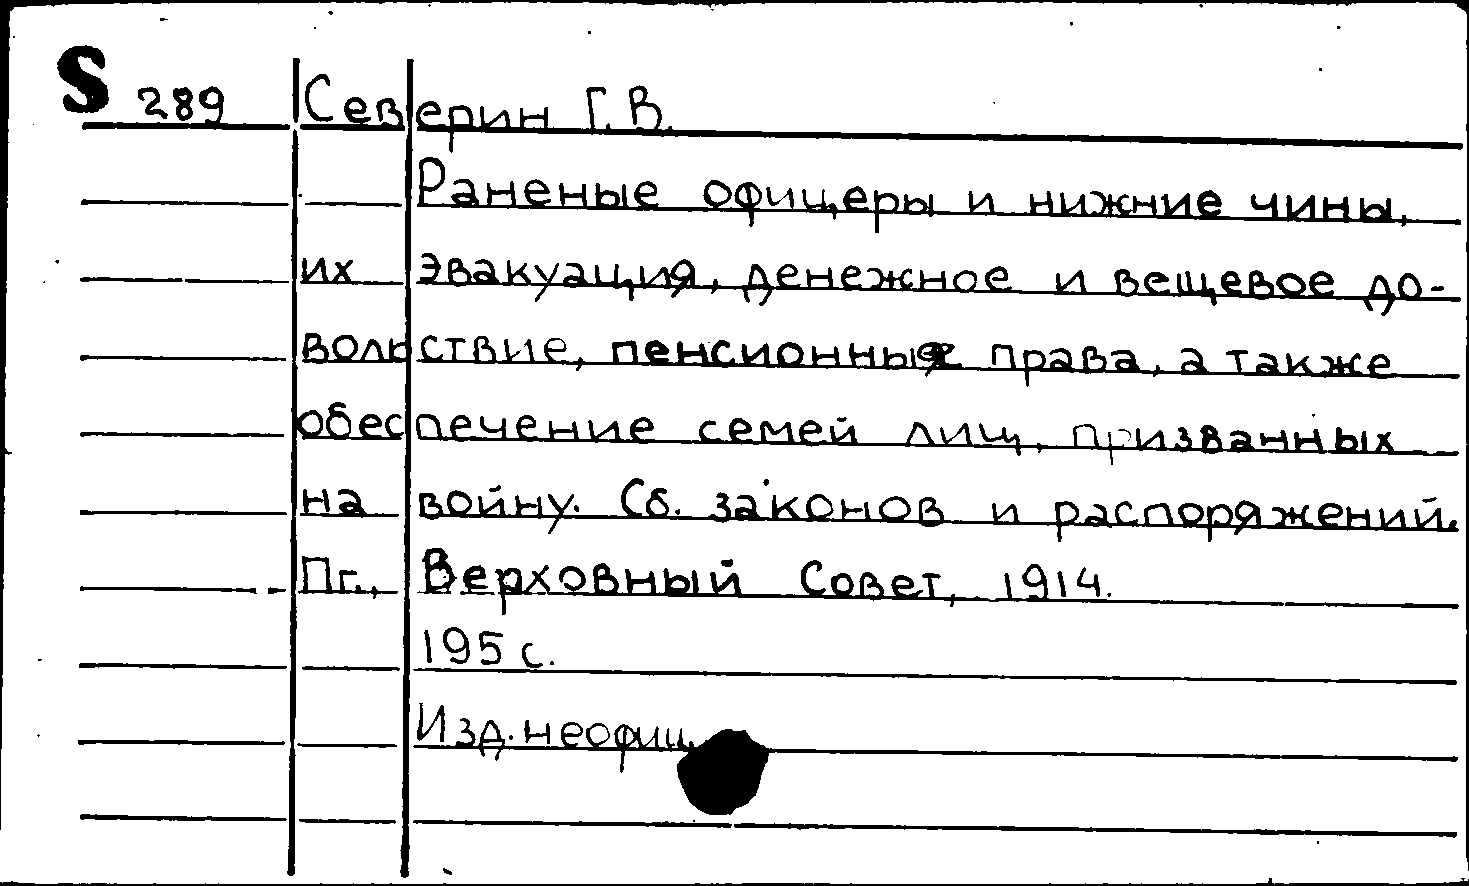 S 289 Северин Г.В.
Раненые офицеры и нижние чины,
их эвакуация, денежное и вещевое до-
вольствие, пенсионные права, а также
обеспечение семей лиц, призванных
на войну. Сб. законов и распоряжений.
Пг., Верховный Совет, 1914.
195 с.
Изд. неофиц